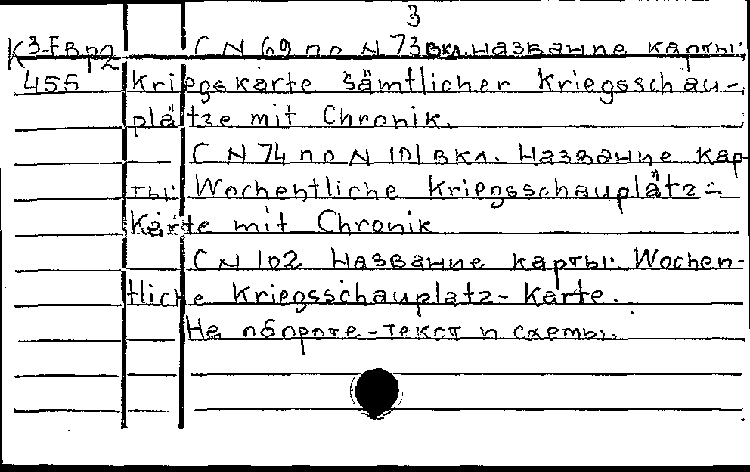 3
К 3-Евр2 С N 69 по N 73 вкл. название карты:
455 Kriegskarte sämtlicher Kriegsschau-
plätze mit Chronik.
С N 74 по N 101 вкл. Название кар-
ты: Wochentliche Kriegsschauplätz-
Karte mit Chronik
С N 102 Название карты: Wochen-
tliche Kriegsschauplatz-Karte.
На обороте-текст и схемы.